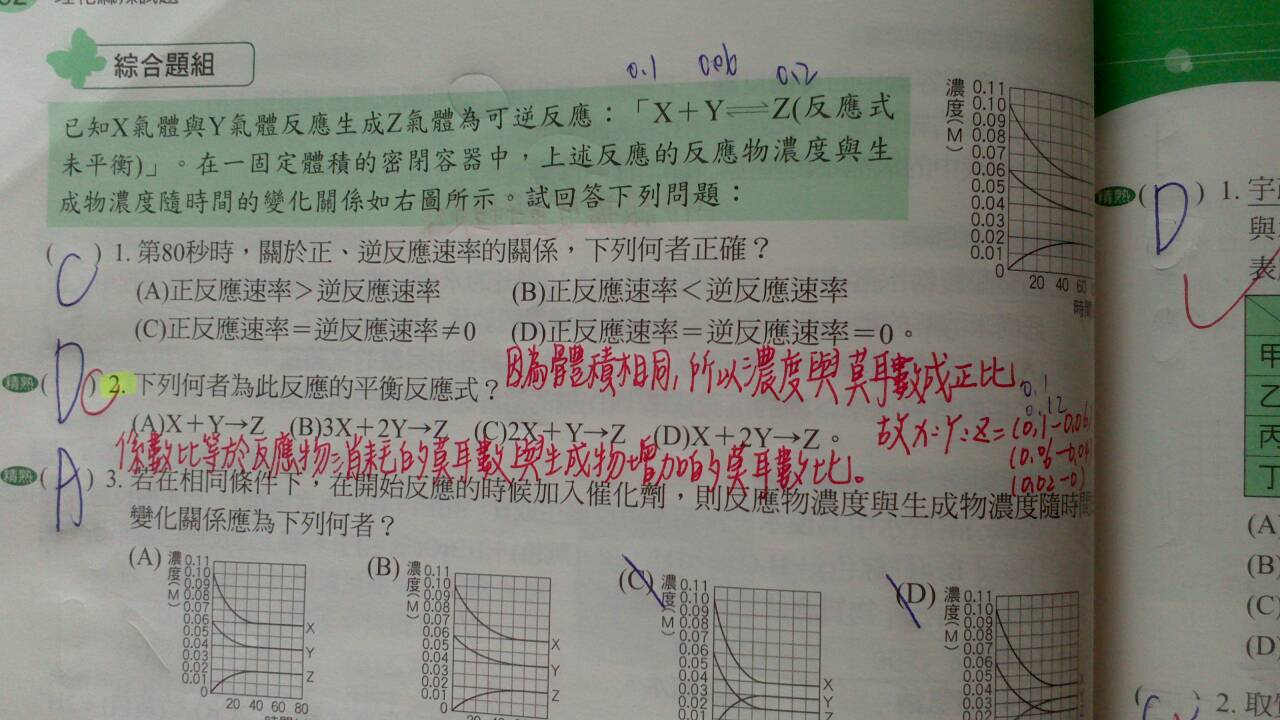 綜合題組
0.1 0.06 0.2
已知X氣體與Y氣體反應生成Z氣體為可逆反應：「X＋Y⇌Z(反應式
未平衡)」。在一固定體積的密閉容器中，上述反應的反應物濃度與生
成物濃度隨時間的變化關係如右圖所示。試回答下列問題：
濃度(M)
0.11
0.10
0.09
0.08
0.07
0.06
0.05
0.04
0.03
0.02
0.01
0
20 40 60
時間
(C) 1. 第80秒時，關於正、逆反應速率的關係，下列何者正確？
(A)正反應速率＞逆反應速率 (B)正反應速率＜逆反應速率
(C)正反應速率＝逆反應速率≠0 (D)正反應速率＝逆反應速率＝0。
因為體積相同，所以濃度與莫耳數成正比
精熟 (D) 2. 下列何者為此反應的平衡反應式？
C
(A)X＋Y→Z (B)3X＋2Y→Z (C)2X＋Y→Z (D)X＋2Y→Z。
0.1
0.12
故X:Y:Z=(0.1-0.06)
(0.06-0.04)
(0.02-0)
係數比等於反應物消耗的莫耳數與生成物增加的莫耳數比。
精熟 (A) 3. 若在相同條件下，在開始反應的時候加入催化劑，則反應物濃度與生成物濃度隨時間
變化關係應為下列何者？
(A) 濃度(M)
0.11
0.10
0.09
0.08
0.07
0.06
0.05
0.04
0.03
0.02
0.01
0
X
Y
Z
20 40 60 80
(B) 濃度(M)
0.11
0.10
0.09
0.08
0.07
0.06
0.05
0.04
0.03
0.02
0.01
0
X
Y
Z
(C) 濃度(M)
0.11
0.10
0.09
0.08
0.07
0.06
0.05
0.04
0.03
0.02
X
Y
Z
(D) 濃度(M)
0.11
0.10
0.09
0.08
0.07
0.06
0.05
0.04
0.03
0.02
X
Y
Z
精熟 (D) 1.
與
表
甲
乙
丙
丁
(A
(B)
(C)
(D)
2. 取